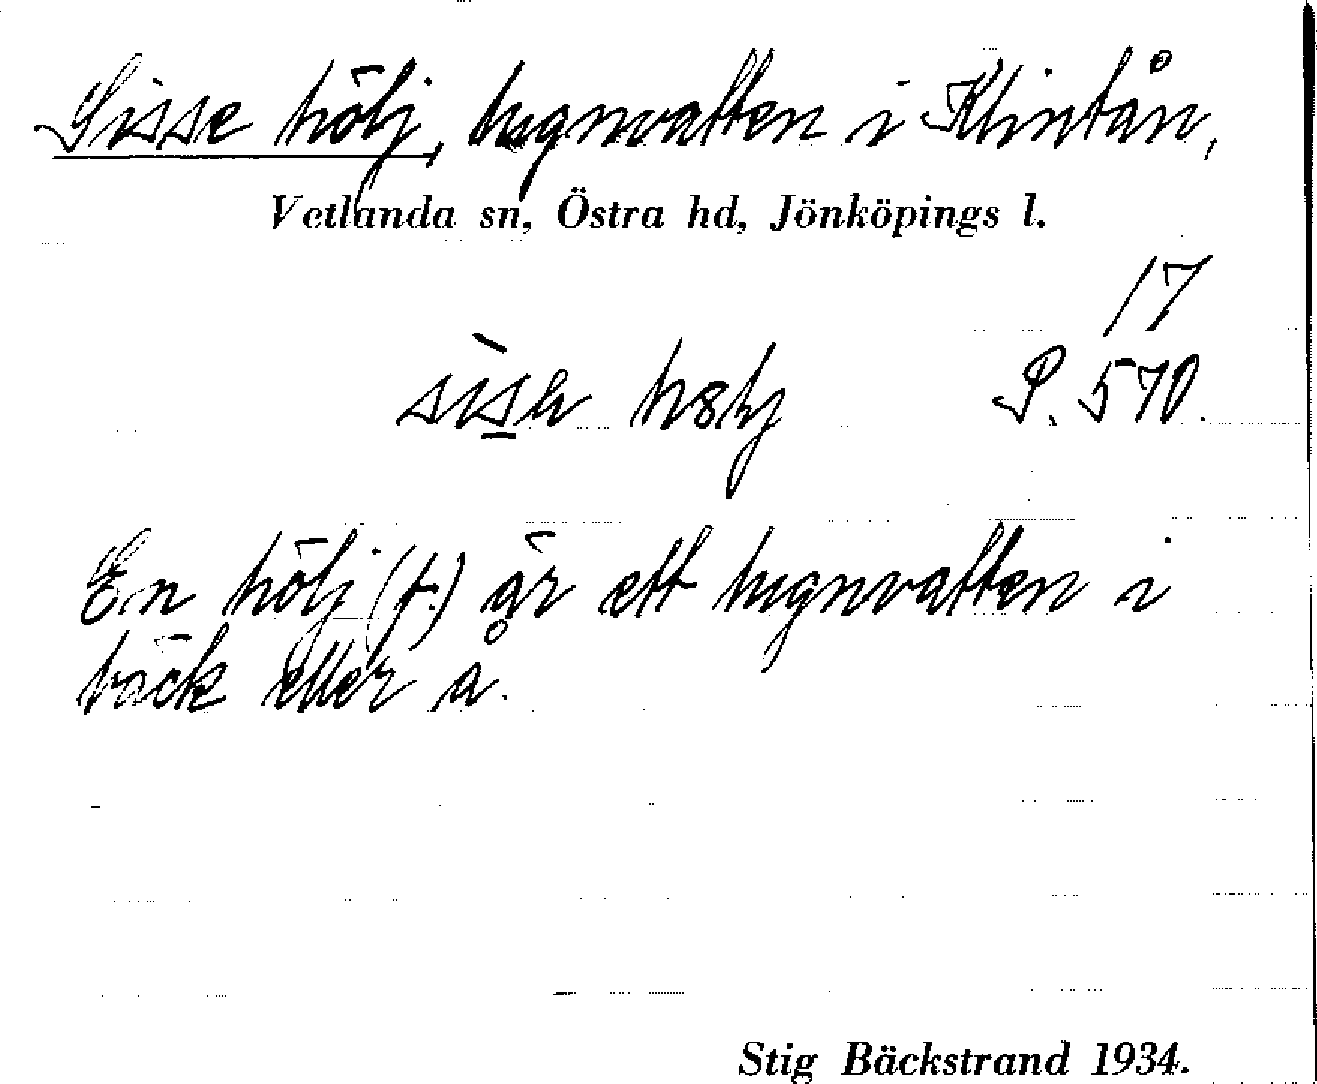 Sisse hölj, lugnvatten i Klintån,
Vetlanda sn, Östra hd, Jönköpings l.
17
P. 570.
En hölj (f.) är ett lugnvatten i
bäck eller å.
Stig Bäckstrand 1934.